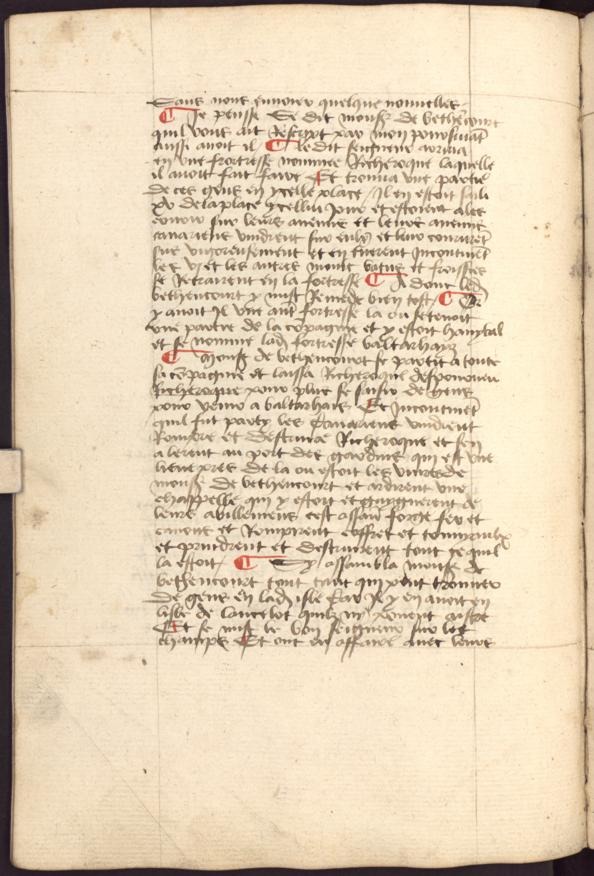 Sans nous envoier quelque nouvelles
¶ Je pense Ce dit mons de bethencourt
quil vous ait Rescript par mon poursuivãt
aussi avoit il ¶ Le dit seigneur arriva
en une fortresse nommee Richeroque laquelle
il avoit fait faire Et trouva une partie
de ces gens en ycelle place Il en estoit sailli
xv de la place ycellui jour et estoient ales
courir sur leurs anemis et leurs anemis
canariens vindrent sur eulx et leur coururẽt
sus vigoreusement et en tuerent incontinẽt
les vi et les autres moult batus et froissies
se Retrairent en la fortresse ¶ Adonc led
bethencourt y mist Remede bien tost ¶
y avoit il une autre fortresse la ou se tenoit
une partie de la cõpagnie et y estoit hanybal
et se nomme lad fortresse baltarhayz
¶ Mons de bethencourt se partit a toute
sa cõpagnie et laissa Richeroque despourveu
Richeroque pour plus se saisir de gens
pour venir a baltarhais Et Incontinẽt
quil fut party les Canariens vindrent
Rompre et destruire Richeroque et sen
alerent au port des gardins qui est une
lieue pres de la ou estoit les vivres de
mons de bethencourt et ardirent une
chappelle qui y estoit et gaignerent de
leurs abillemens cest assavoir forge fer et
canons et Rompirent coffres et tonneaulx
et prindrent et destruirent tout ce quil
la estoit ¶ Sy assambla mons de
bethencourt tout tant qui peut trouver
de gens en lad isle Car Il y en avoit en
lisle de lancelot quilz ny peurent aistre
Et se mist le bon seigneur sur les
champs Et ont eu affaire avec leurs